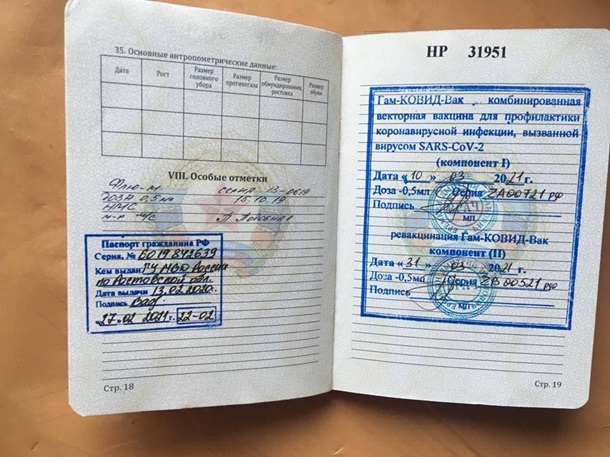 35. Основные антропометрические данные:
Дата Рост Размер головного убора Размер противогаза Размер обмундирования, ростовка Размер обуви
VIII. Особые отметки
Флю-М серия 13-0619
ДОЗА 0,5 мл 15.10.19
м-р м/с
Паспорт гражданина РФ
Серия, № 6019 842639
Кем выдан ГУ МВД России
по Ростовской обл.
Дата выдачи 13.02.2020.
Подпись
27.02 2021 г. 22-02
Стр. 18
НР 31951
Гам-КОВИД-Вак комбинированная
векторная вакцина для профилактики
коронавирусной инфекции, вызванной
вирусом SARS-CoV-2
(компонент I)
Дата «10» 03 2021 г.
Доза -0,5мл Серия
Подпись
МП
ревакцинация Гам-КОВИД-Вак
компонент (II)
Дата «31» 03 2021 г.
Доза -0,5мл Серия
Подпись
МП
Стр. 19